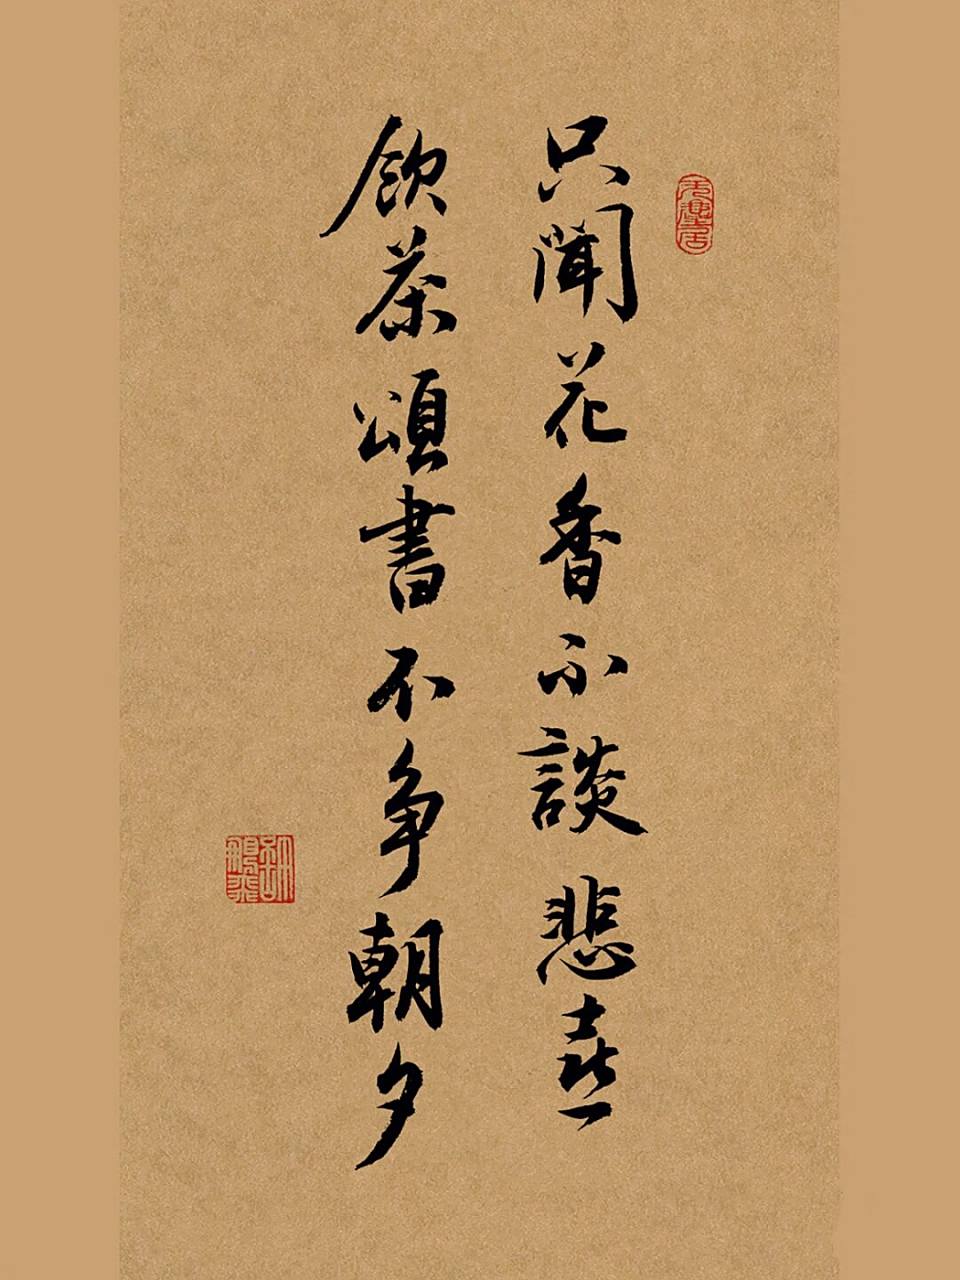 只聞花香不談悲喜
飲茶頌書不争朝夕